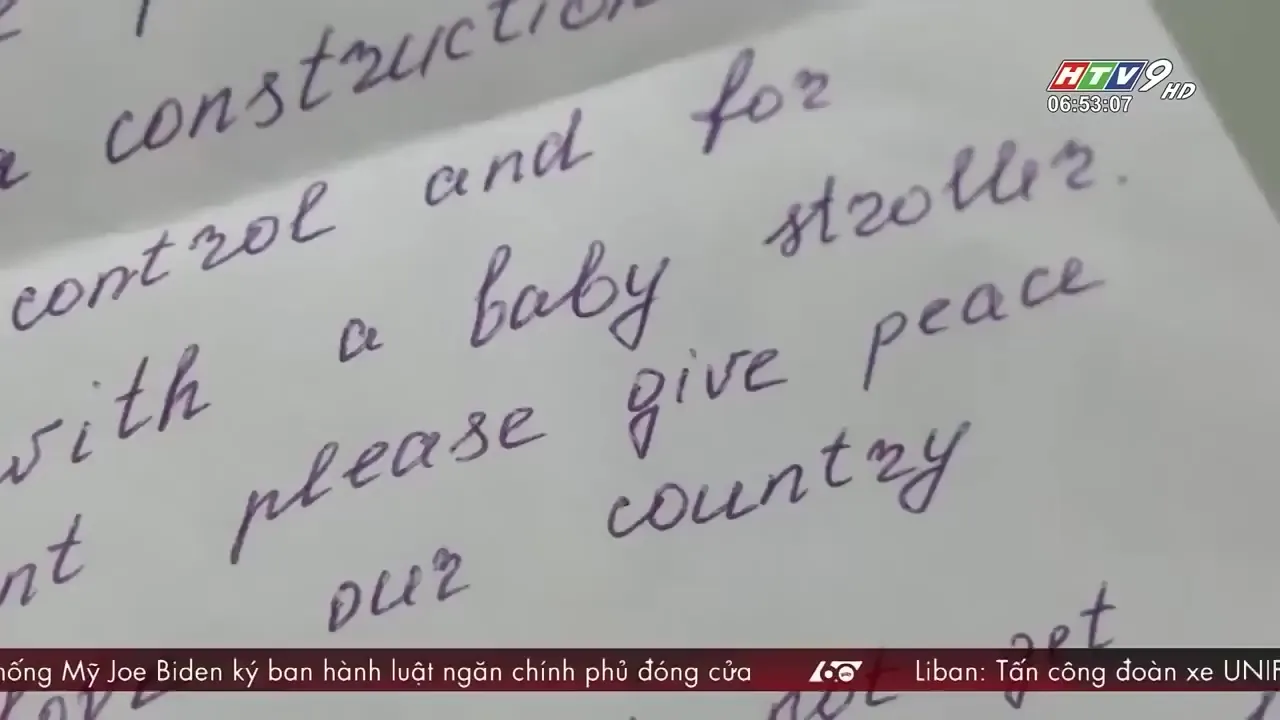 construction
control and for
with a baby stroller.
please give peace
our country
get
not
HTV9 HD
06:53:07
Mỹ Joe Biden ký ban hành luật ngăn chính phủ đóng cửa
60
Liban: Tấn công đoàn xe